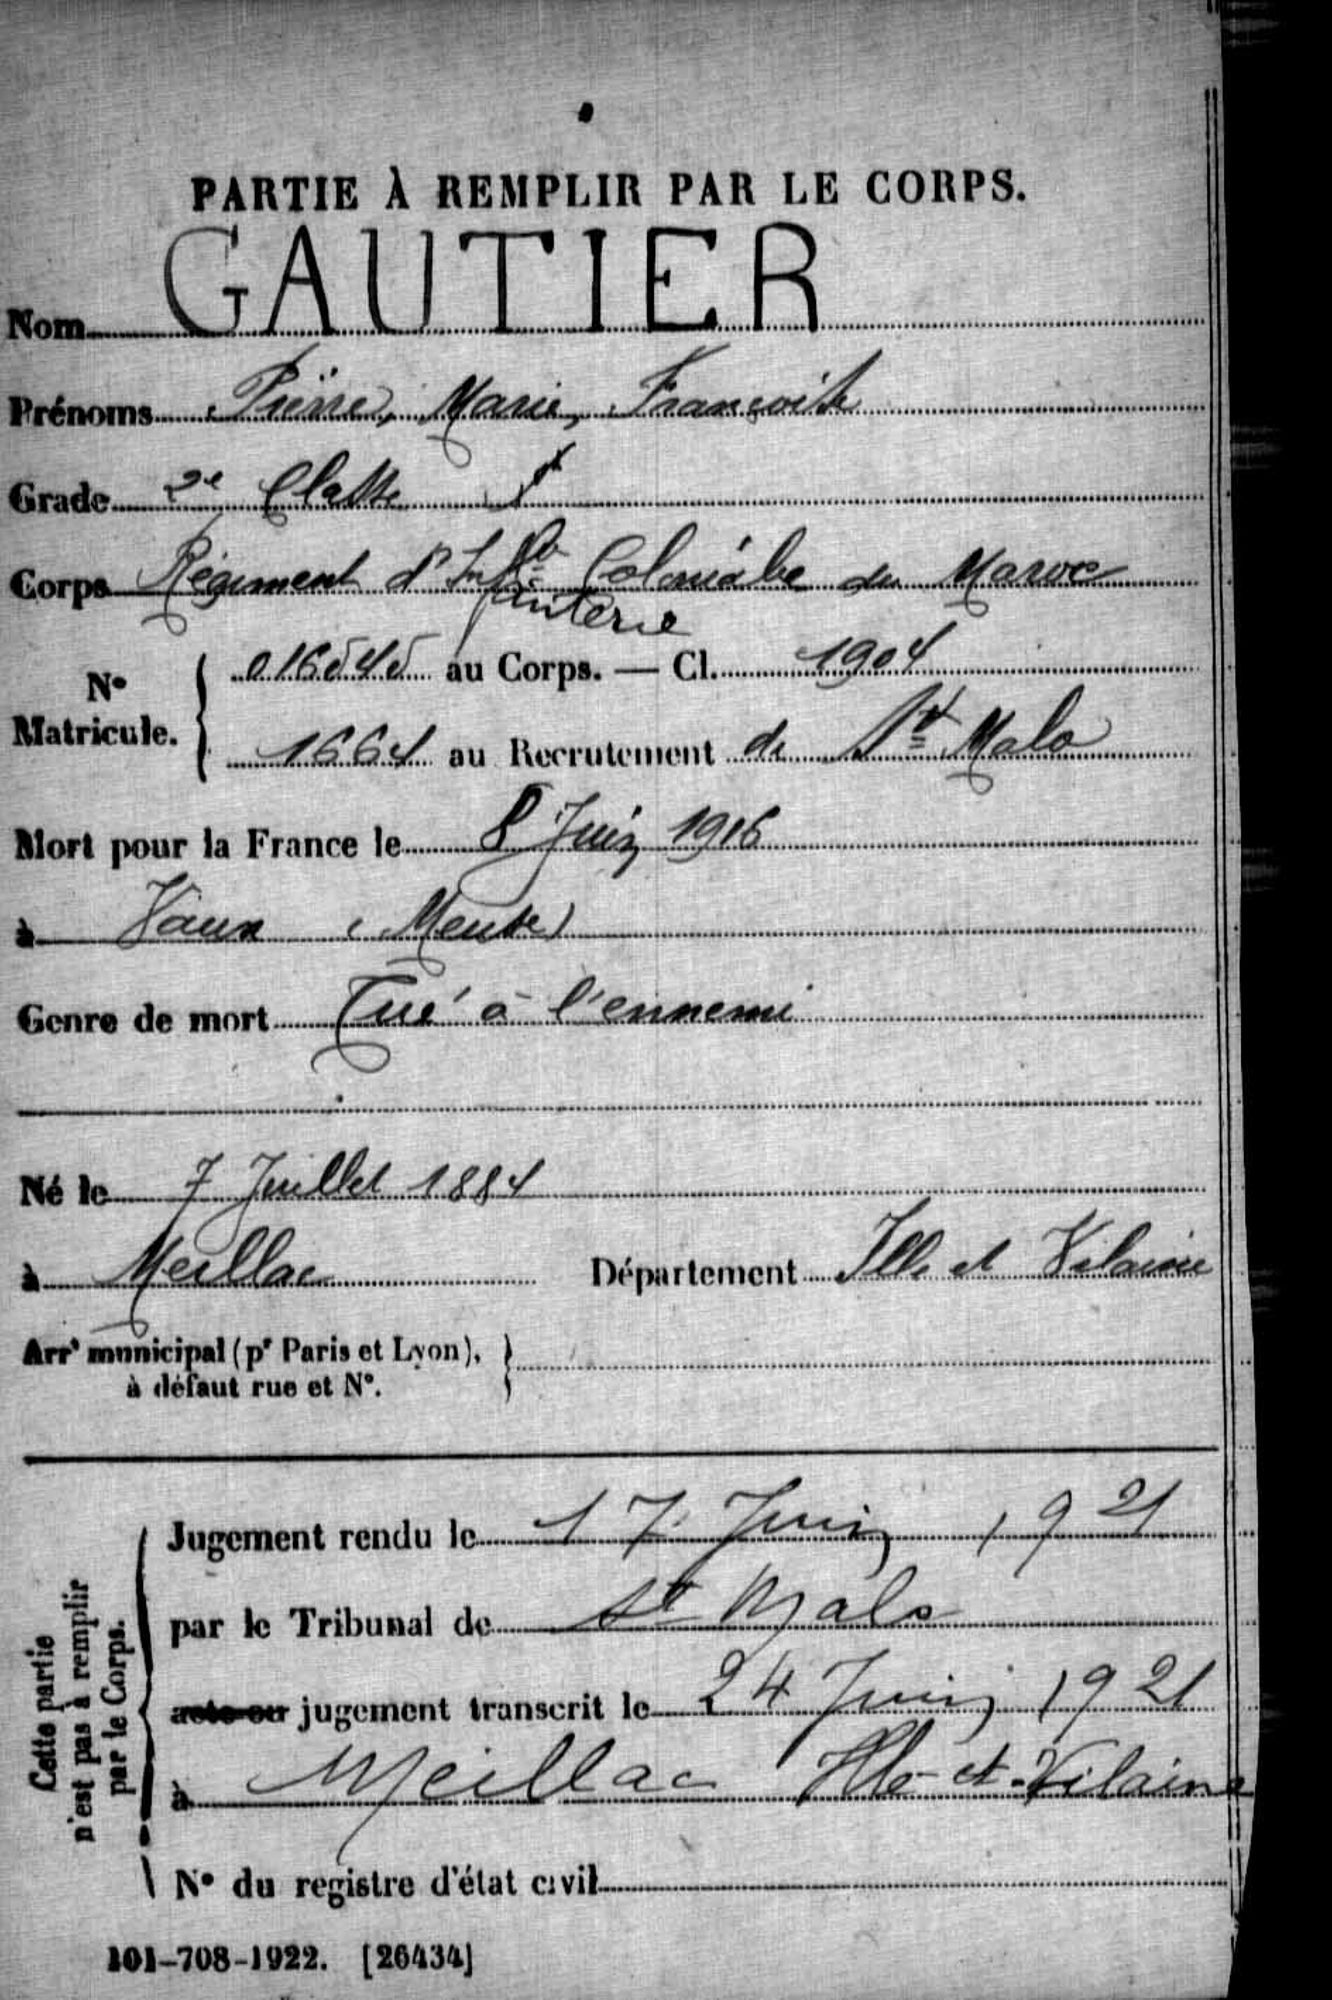 PARTIE À REMPLIR PAR LE CORPS.
Nom GAUTIER
Prénoms Pierre, Marie, François
Grade 2e Classe
Corps Régiment d'Inf Coloniale du Maroc
fanterie
No Matricule. { 016545 au Corps. — Cl. 1904
1664 au Recrutement de St Malo
Mort pour la France le 8 Juin 1916
à Vaux (Meuse)
Genre de mort Tué à l'ennemi
Né le 7 Juillet 1884
à Meillac Département Ille et Vilaine
Arrt municipal (pr Paris et Lyon), }
à défaut rue et N°.
Cette partie
n'est pas à remplir
par le Corps.
Jugement rendu le 17 Juin 1921
par le Tribunal de St Malo
acte ou jugement transcrit le 24 Juin 1921
à Meillac Ille-et-Vilaine
N° du registre d'état civil
101-708-1922. [26434]